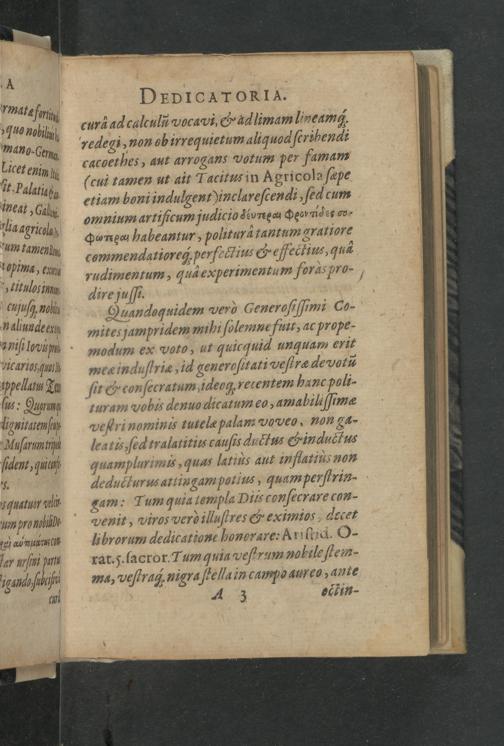 . A
rmatæ fortitud
, quo nobilius
mano-Germa
Licet enim
sit. Palatia
ineat, Galli
glia agricola
rum tamen
t opima,
, titulos
cujusq́, nobi
n aliunde
a nisi Iovis
vicarios, quos
appellatus Ze
sus: Quorum
dignitatem
Musarum
sident, qui
s.
os quatuor
cum pro nobili
tar ursini partu
ligando, subcisivâ
curâ
DEDICATORIA.
curâ ad calculũ vocavi, & ad limam lineamq́;
redegi, non ob irrequietum aliquod scribendi
cacoethes, aut arrogans votum per famam
(cui tamen ut ait Tacitus in Agricola sæpe
etiam boni indulgent) inclarescendi, sed cum
omnium artificum judicio δεύτεραι Φροντίδες σο-
Φώτεραι habeantur, politurâ tantum gratiore
commendatioreq́; perfectius & effectius, quâ
rudimentum, quâ experimentum foràs pro-
dire jussi.
Quandoquidem verò Generosissimi Co-
mites jampridem mihi solemne fuit, ac prope-
modum ex voto, ut quicquid unquam erit
meæ industriæ, id generositati vestræ devotũ
sit & consecratum, ideoq́; recentem hanc poli-
turam vobis denuo dicatum eo, amabilissimæ
vestri nominis tutelæ palam voveo, non ga-
leatis, sed tralatitius causis ductus & inductus
quamplurimis, quas latiùs aut inflatiùs non
deducturus attingam potius, quam perstrin-
gam: Tum quia templa Diis consecrare con-
venit, viros verò illustres & eximios, decet
librorum dedicatione honorare: Aristid. O-
rat. 5. sacror. Tum quia vestrum nobile stem-
ma, vestraq́; nigra stella in campo aureo, ante
A 3 octin-